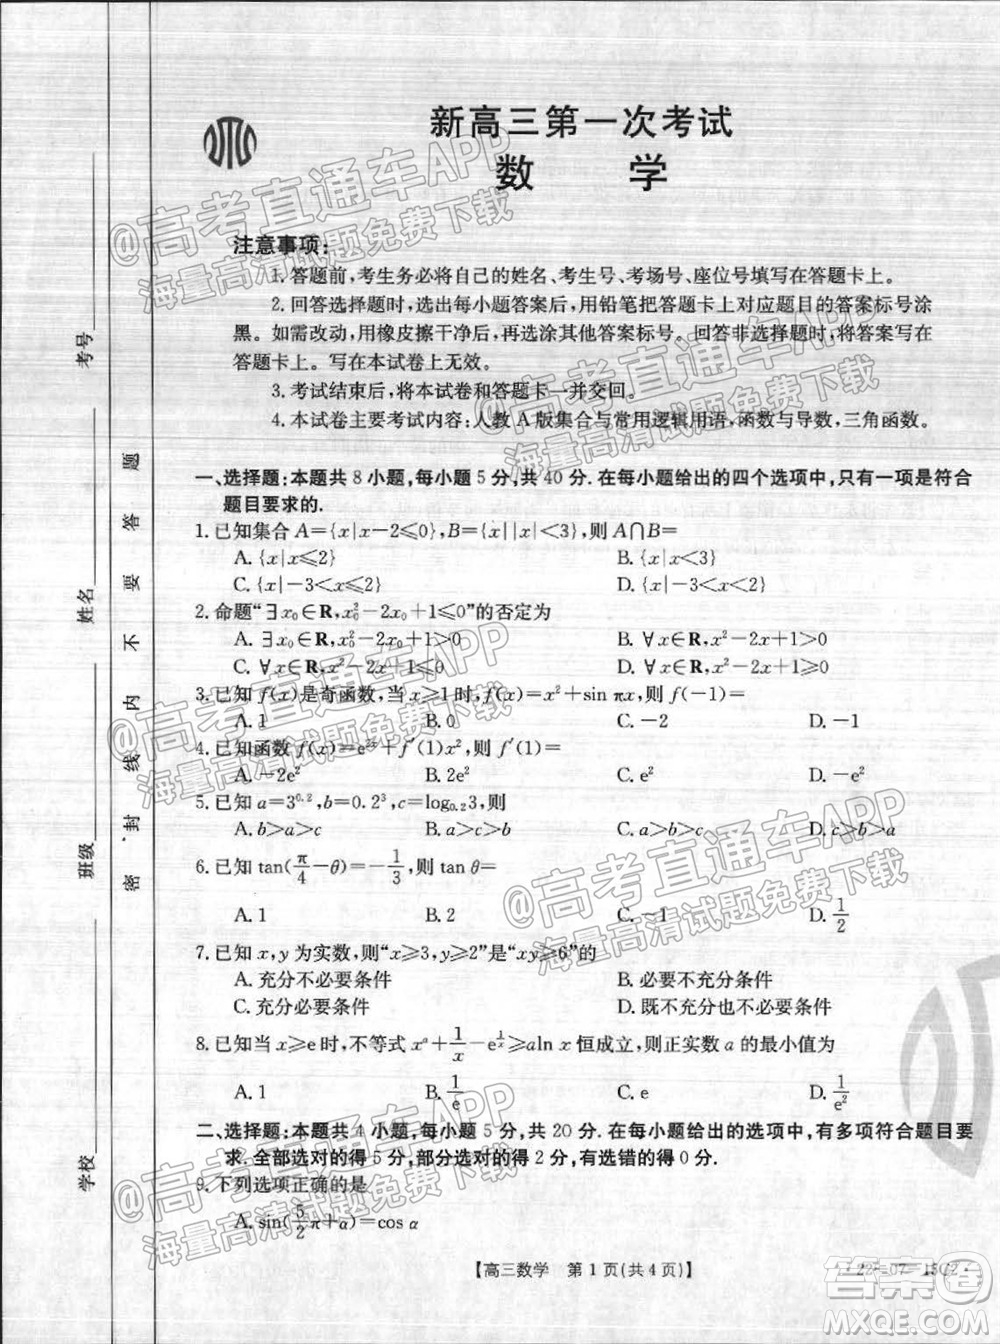 新高三第一次考试
数 学
注意事项:
1. 答题前,考生务必将自己的姓名、考生号、考场号、座位号填写在答题卡上。
2. 回答选择题时,选出每小题答案后,用铅笔把答题卡上对应题目的答案标号涂
黑。如需改动,用橡皮擦干净后,再选涂其他答案标号。回答非选择题时,将答案写在
答题卡上。写在本试卷上无效。
3. 考试结束后,将本试卷和答题卡一并交回。
4. 本试卷主要考试内容:人教 A 版集合与常用逻辑用语,函数与导数,三角函数。
一、选择题:本题共 8 小题,每小题 5 分,共 40 分. 在每小题给出的四个选项中,只有一项是符合
题目要求的.
1. 已知集合 A={x|x-2≤0},B={x||x|<3},则 A∩B=
A. {x|x≤2} B. {x|x<3}
C. {x|-3<x≤2} D. {x|-3<x<3}
2. 命题“∃x₀∈R,x₀²-2x₀+1≤0”的否定为
A. ∃x₀∈R,x₀²-2x₀+1>0 B. ∀x∈R,x²-2x+1>0
C. ∀x∈R,x²-2x+1≤0 D. ∀x∈R,x²-2x+1≥0
3. 已知 f(x)是奇函数,当 x≥1 时,f(x)=x²+sin πx,则 f(-1)=
A. 1 B. 0 C. -2 D. -1
4. 已知函数 f(x)=e²ˣ+f′(1)x²,则 f′(1)=
A. -2e² B. 2e² C. e² D. -e²
5. 已知 a=3^0.2,b=0.2³,c=log₀.₂3,则
A. b>a>c B. a>c>b C. a>b>c D. c>b>a
6. 已知 tan(π/4-θ)=-1/3,则 tan θ=
A. 1 B. 2 C. -1 D. 1/2
7. 已知 x,y 为实数,则“x≥3,y≥2”是“xy≥6”的
A. 充分不必要条件 B. 必要不充分条件
C. 充分必要条件 D. 既不充分也不必要条件
8. 已知当 x≥e 时,不等式 xᵃ+1/x-e^(1/x)≥aln x 恒成立,则正实数 a 的最小值为
A. 1 B. 1/e C. e D. 1/e²
二、选择题:本题共 4 小题,每小题 5 分,共 20 分. 在每小题给出的选项中,有多项符合题目要
求. 全部选对的得 5 分,部分选对的得 2 分,有选错的得 0 分.
9. 下列选项正确的是
A. sin(5/2π+α)=cos α
【高三数学 第 1 页(共 4 页)】
·22-07-15C2·
学校
班级
姓名
考号
密 封 线 内 不 要 答 题
@高考直通车APP
海量高清试题免费下载
@高考直通车APP
海量高清试题免费下载
@高考直通车APP
海量高清试题免费下载
@高考直通车APP
海量高清试题免费下载
@高考直通车APP
海量高清试题免费下载
答案圈
MXQE.COM